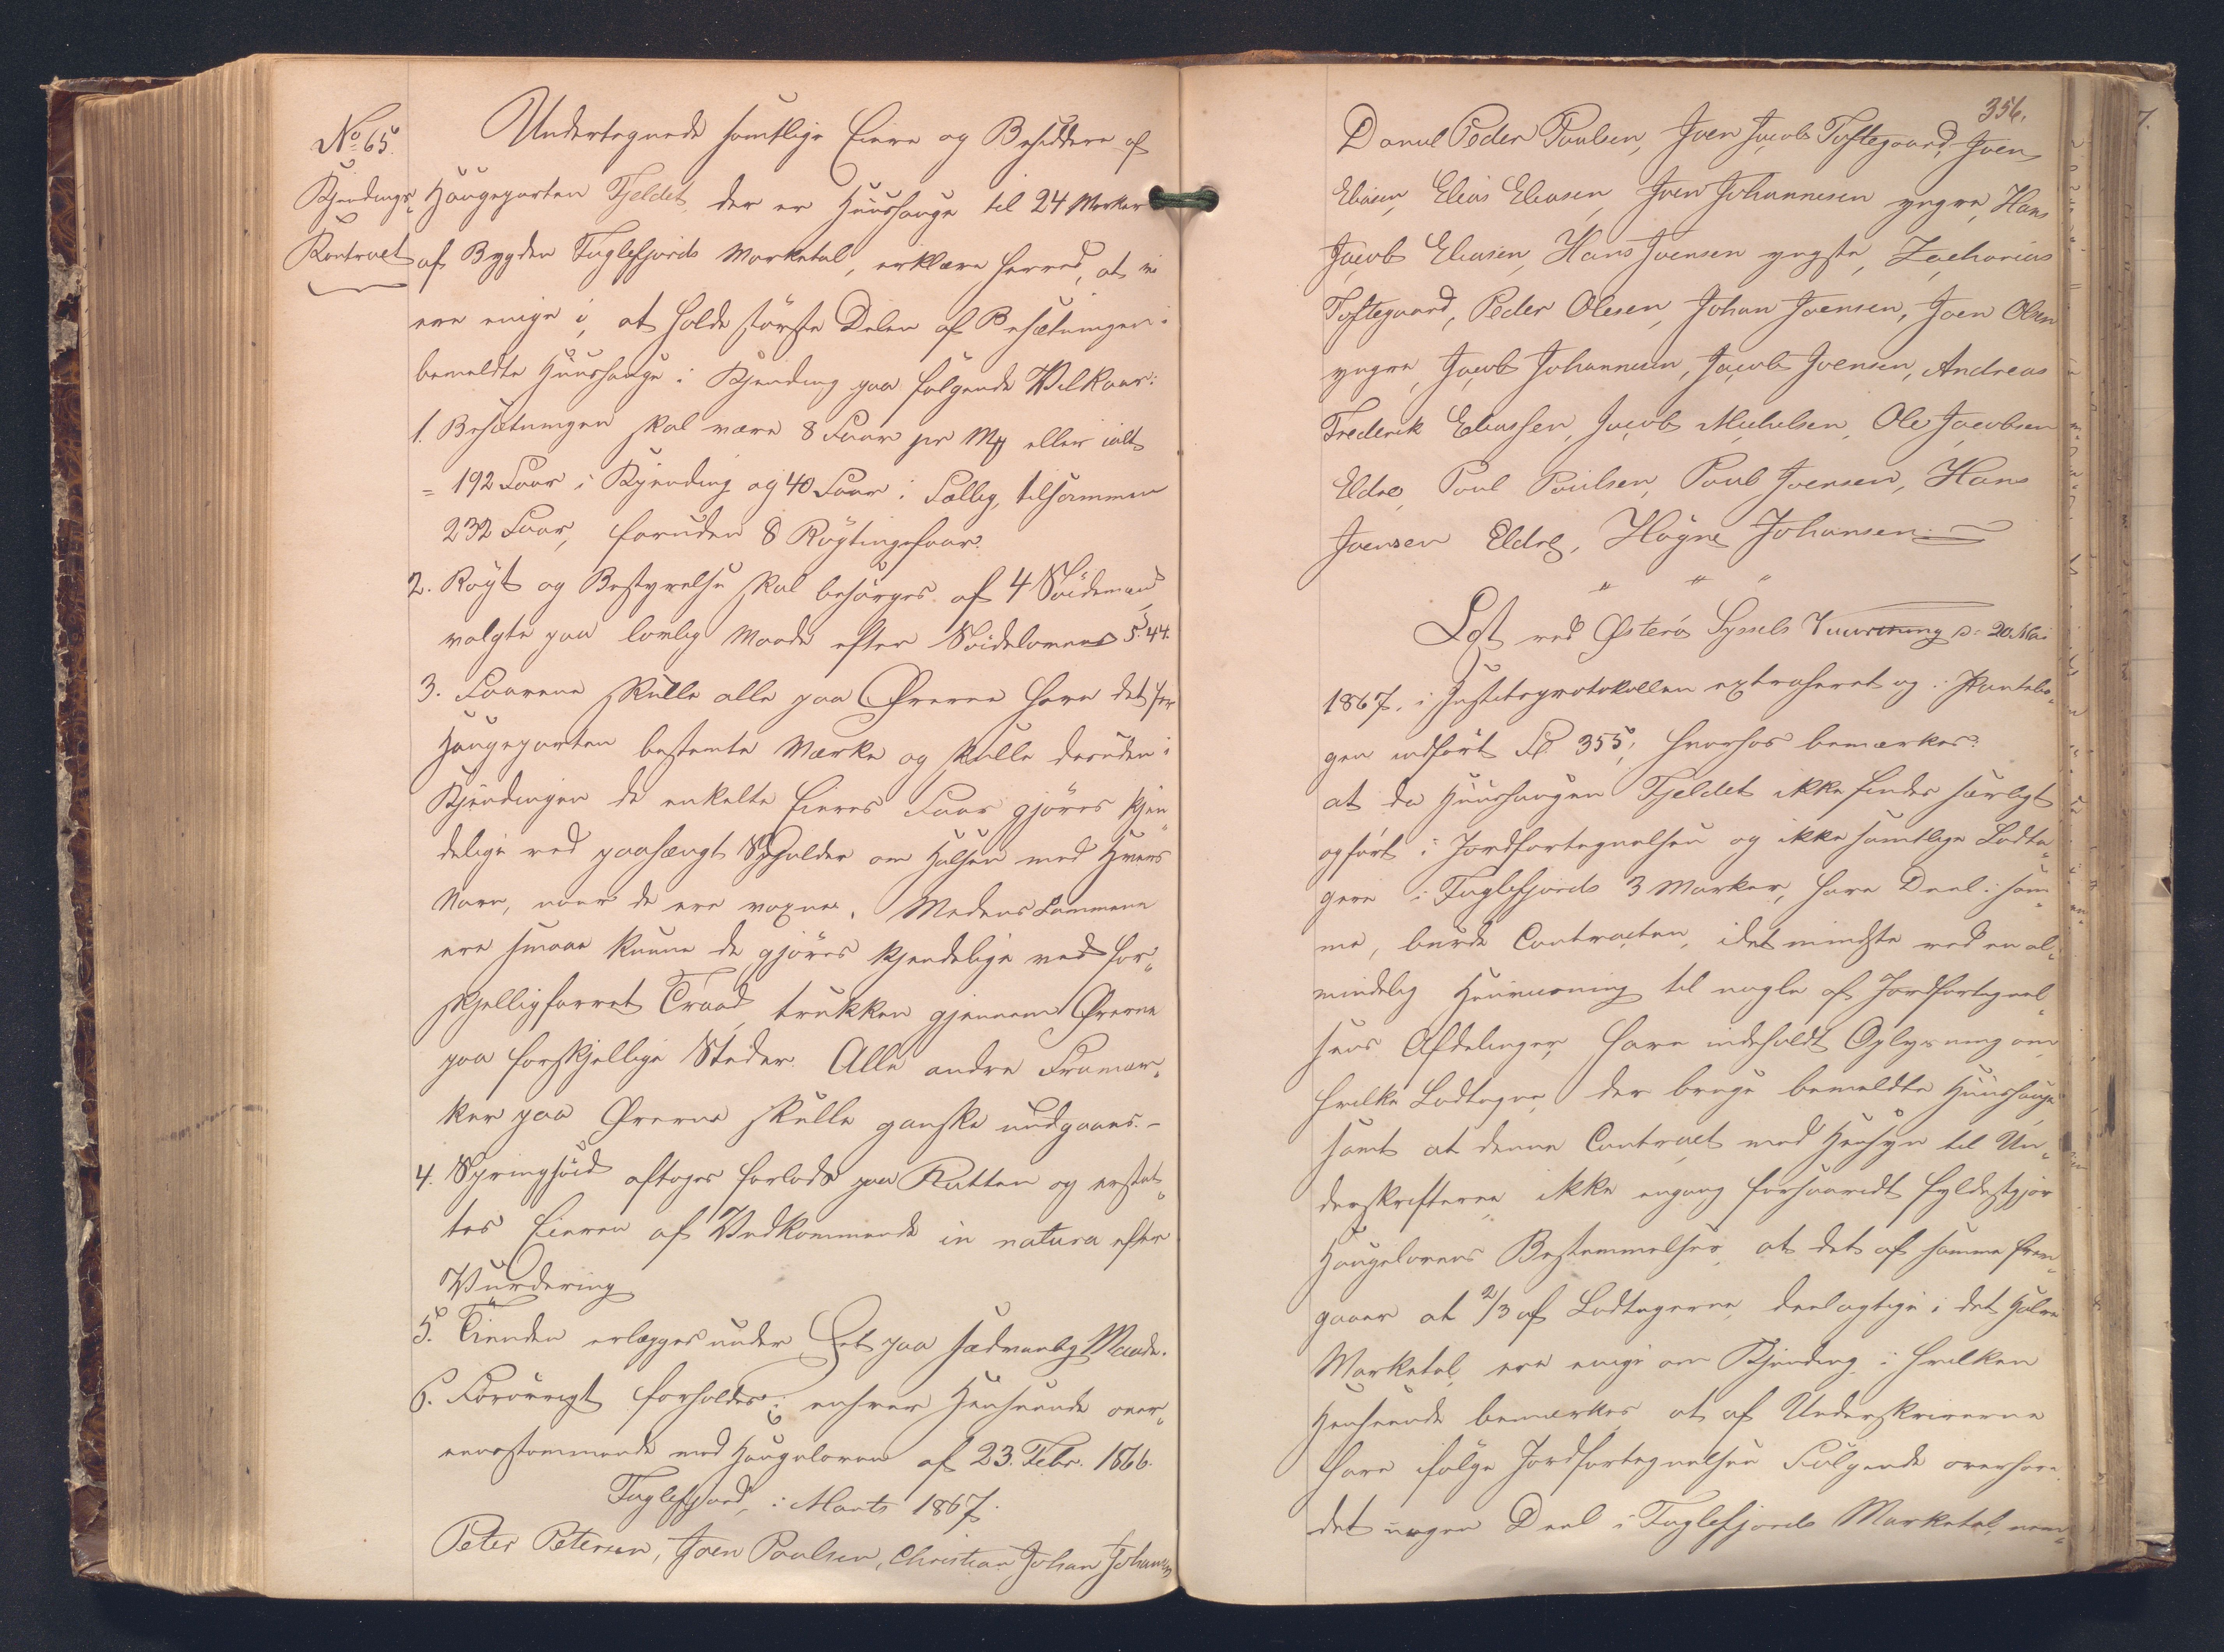 No 65.
Kjendings-
Kontract
Undertegnede samtlige Eiere og Besiddere af
Haugeparten Fjeldet, der er Huushauge til 24 Marker
af Bygden Fuglefjords Marketal, erklære herved, at vi
ere enige i, at holde største Delen af Besætningen i
bemeldte Huushauge i Kjending paa følgende Vilkaar:
1. Besætningen skal være 8 Faar pr Mk eller ialt
= 192 Faar i Kjending og 40 Faar i Fællig, tilsammen
232 Faar, foruden 8 Røgtingsfaar.
2. Røgt og Bestyrelse skal besørges af 4 Soidemænd
valgte paa lovlig Maade efter Soidelovens § 44.
3. Faarene skulle alle paa Ørerne have det for
Haugeparten bestemte Mærke og skulle desuden i
Kjendingen de enkelte Eieres Faar gjøres kjen-
delige ved paahængt Spjælder om Halsen med Hvers
Navn, naar de ere voxne. Medens Lammene
ere smaae kunne de gjøres kjendelige ved for-
skjelligfarvet Traad, trukken gjennem Ørerne
paa forskjellige Steder. Alle andre Framær-
ker paa Ørerne skulle ganske undgaaes. -
4. Springsoid aftages forlods paa Rætten og erstat-
tes Eieren af Vedkommende in natura efter
Vurdering
5. Tienden erlægges under Eet paa sædvanlig Maade.
6. Forøvrigt forholdes i enhver Henseende over-
eensstemmende med Haugeloven af 23. Febr. 1866.
Fuglefjord, i Marts 1867.
Peter Petersen, Joen Poulsen, Christian Johan Johansen
356.
Daniel Peder Poulsen, Joen Jacob Toftegaard, Joen
Eliasen, Elias Eliasen, Joen Johannesen yngre, Hans
Jacob Eliasen, Hans Joensen yngste, Zacharias
Toftegaard, Peder Olesen, Johan Joensen, Joen Olsen
yngre, Jacob Johannesen, Jacob Joensen, Andreas
Frederik Eliassen, Jacob Michelsen, Ole Jacobsen
Eldre, Poul Poulsen, Poul Joensen, Hans
Joensen Eldre, Høgne Johansen.
" " "
Læst ved Østerø Syssels d: 20. Mai
1867, i Justitsprotokollen extraheret og i Pantebo-
gen indført Fol. 355, hvorhos bemærkes:
at da Huushaugen Fjeldet ikke findes særligt
opført i Jordfortegnelsen og ikke samtlige Lodta-
gere i Fuglefjords 3 Marker, have Deel i sam-
me, burde Contracten, idet mindste ved en al-
mindelig Henviisning til nogle af Jordfortegnel-
sens Afdelinger, have indeholdt Oplysning om
hvilke Lodtagere, der bruge bemeldte Huushauge
samt at denne Contract med Hensyn til Un-
derskrifterne ikke engang forsaavidt fyldestgjør
Haugelovens Bestemmelser, at det af samme frem-
gaaer at 2/3 af Lodtagerne, deelagtige i det halve
Marketal, ere enige om Kjending i hvilken
Henseende bemærkes at af Underskriverne
have ifølge Jordfortegnelsen Følgende overhove-
det ingen Deel i Fuglefjords Marketal, nem-